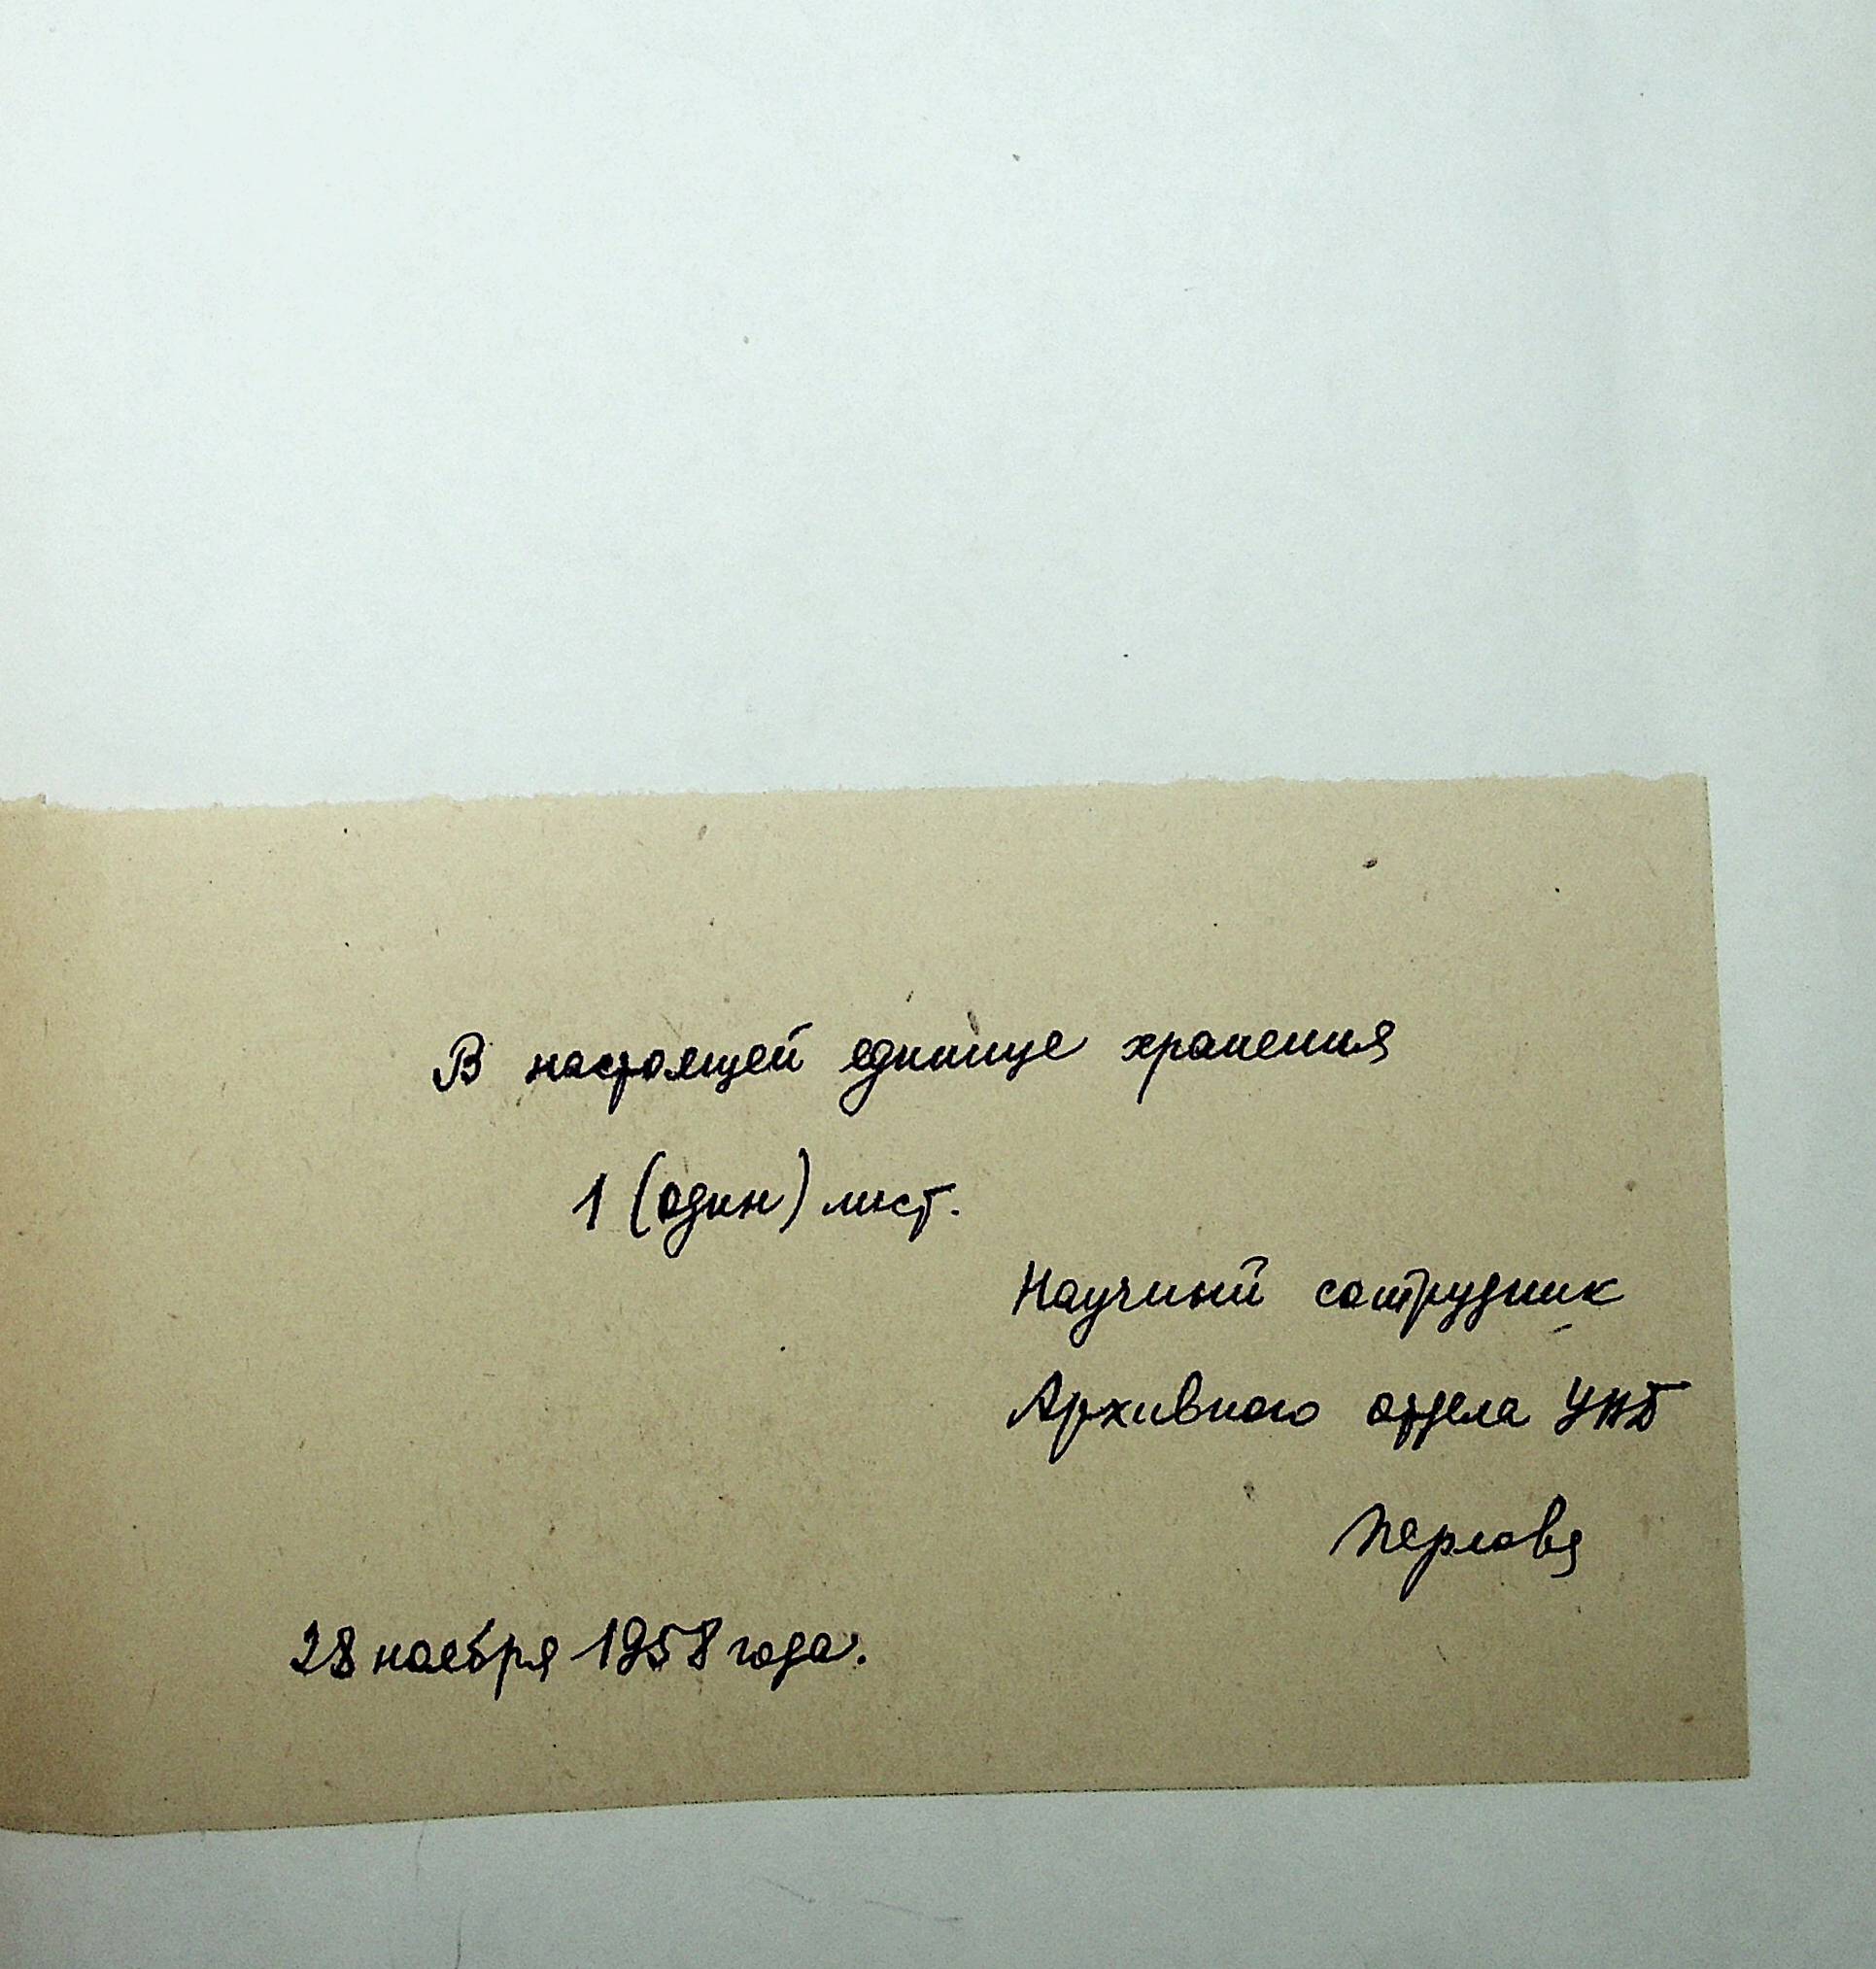 В настоящей единице хранения
1 (один) лист.
Научный сотрудник
Архивного отдела УНБ
28 ноября 1958 года.